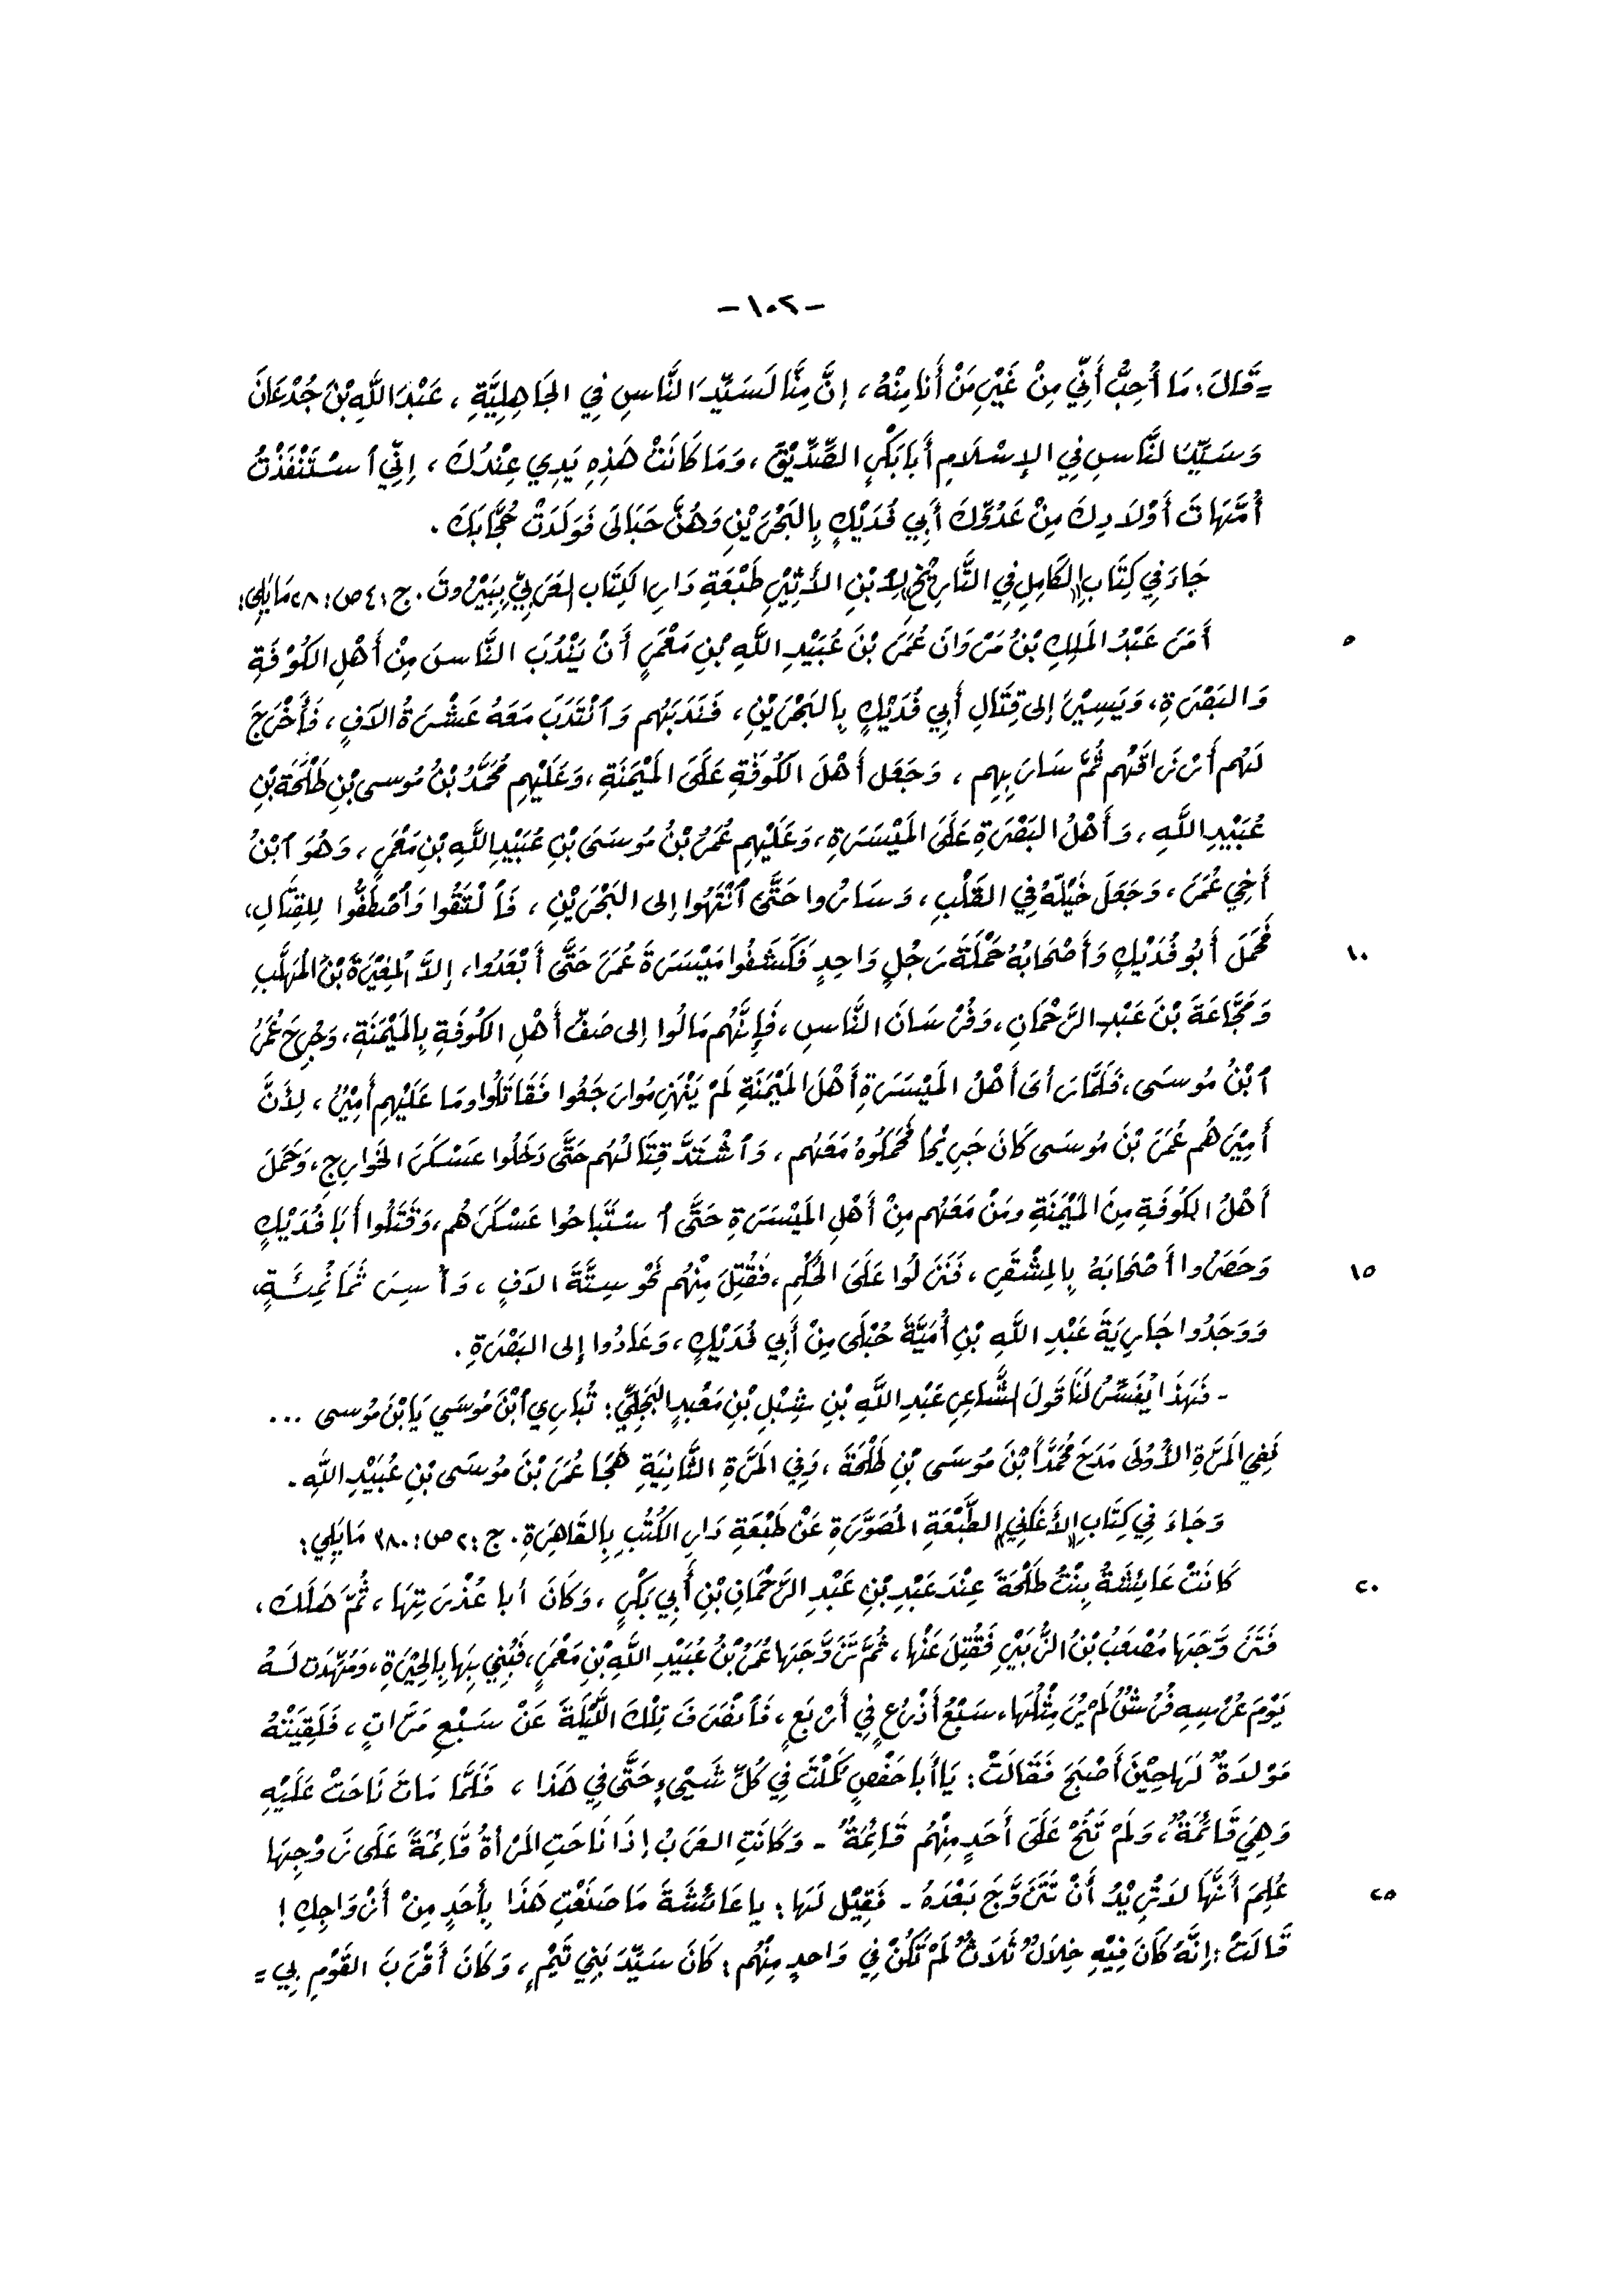 -١٠٢-
= قَالَ: مَا أُحِبُّ أَنِّي مِنْ غَيْرِ مَنْ أَنا مِنْهُ، إِنَّ مِنَّا لَسَيِّدَ النَّاسِ فِي الجَاهِلِيَّةِ، عَبْدَ اللَّهِ بْنَ جُدْعَانَ
وَسَيِّدَ النَّاسِ فِي الإِسْلَامِ أَبَا بَكْرٍ الصِّدِّيْقَ، وَمَا كَانَتْ هَذِهِ يَدِي عِنْدَكَ، إِنِّي ٱسْتَنْقَذْتُ
أُمَّهَاتَ أَوْلَادِكَ مِنْ عَدُوِّكَ أَبِي فُدَيْكٍ بِالبَحْرَيْنِ وَهُنَّ حَبَالَى فَوَلَدَتْ حُجَّابَكَ.
جَاءَ فِي كِتَابِ «الكَامِلِ فِي التَّارِيْخِ» لِابْنِ الأَثِيْرِ طَبْعَةِ دَارِ الكِتَابِ العَرَبِيِّ بِبَيْرُوتَ. ج: ٤ ص: ٢٨ مَا يَلِي:
٥ أَمَرَ عَبْدُ المَلِكِ بْنُ مَرْوَانَ عُمَرَ بْنَ عُبَيْدِ اللَّهِ بْنِ مَعْمَرٍ أَنْ يَنْدُبَ النَّاسَ مِنْ أَهْلِ الكُوْفَةِ
وَالبَصْرَةِ، وَيَسِيْرَ إِلى قِتَالِ أَبِي فُدَيْكٍ بِالبَحْرَيْنِ، فَنَدَبَهُم وَٱنْتَدَبَ مَعَهُ عَشْرَةُ آلَافٍ، فَأَخْرَجَ
لَهُم أَرْزَاقَهُم ثُمَّ سَارَ بِهِم، وَجَعَلَ أَهْلَ الكُوفَةِ عَلَى المَيْمَنَةِ، وَعَلَيْهِم مُحَمَّدُ بْنُ مُوسى بْنِ طَلْحَةَ بْنِ
عُبَيْدِ اللَّهِ، وَأَهْلُ البَصْرَةِ عَلَى المَيْسَرَةِ، وَعَلَيْهِم عُمَرُ بْنُ مُوسَى بْنِ عُبَيْدِ اللَّهِ بْنِ مَعْمَرٍ، وَهُوَ ٱبْنُ
أَخِي عُمَرَ، وَجَعَلَ خَيْلَهُ فِي القَلْبِ، وَسَارُوا حَتَّى ٱنْتَهُوا إِلى البَحْرَيْنِ، فَٱلْتَقُوا وَٱصْطَفُّوا لِلقِتَالِ،
١٠ فَحَمَلَ أَبُو فُدَيْكٍ وَأَصْحَابُهُ حَمْلَةَ رَجُلٍ وَاحِدٍ فَكَشَفُوا مَيْسَرَةَ عُمَرَ حَتَّى أَبْعَدُوا، إِلَّا المُغِيْرَةَ بْنَ المُهَلَّبِ
وَمَجَّاعَةَ بْنَ عَبْدِ الرَّحْمَانِ، وَفُرْسَانَ النَّاسِ، فَإِنَّهُم مَالُوا إِلى صَفِّ أَهْلِ الكُوفَةِ بِالمَيْمَنَةِ، وَجُرِحَ عُمَرُ
ٱبْنُ مُوسَى، فَلَمَّا رَأى أَهْلُ المَيْسَرَةِ أَهْلَ المَيْمَنَةِ لَمْ يَنْهَزِمُوا رَجَعُوا فَقَاتَلُوا وَمَا عَلَيْهِم أَمِيْرٌ، لِأَنَّ
أَمِيْرَهُم عُمَرَ بْنَ مُوسَى كَانَ جَرِيْحًا فَحَمَلُوهُ مَعَهُم، وَٱشْتَدَّ قِتَالُهُم حَتَّى دَخَلُوا عَسْكَرَ الخَوَارِجِ، وَحَمَلَ
أَهْلُ الكُوفَةِ مِنَ المَيْمَنَةِ وَمَنْ مَعَهُم مِنْ أَهْلِ المَيْسَرَةِ حَتَّى ٱسْتَبَاحُوا عَسْكَرَهُم، وَقَتَلُوا أَبَا فُدَيْكٍ
١٥ وَحَصَرُوا أَصْحَابَهُ بِالمِشْقَرِ، فَنَزَلُوا عَلَى الحُكْمِ، فَقُتِلَ مِنْهُم نَحْوُ سِتَّةَ آلَافٍ، وَأُسِرَ ثَمَانُمِئَةٍ،
وَوَجَدُوا جَارِيَةَ عَبْدِ اللَّهِ بْنِ أُمَيَّةَ حُبْلَى مِنْ أَبِي فُدَيْكٍ، وَعَادُوا إِلى البَصْرَةِ.
- فَهَذَا يُفَسِّرُ لَنَا قَولَ الشَّاعِرِ عَبْدِ اللَّهِ بْنِ شِبْلِ بْنِ مَعْبدٍ البَجَلِيِّ: تُبَارِي ٱبْنَ مُوسَى يَا بْنَ مُوسى ...
فَفِي المَرَّةِ الأُوْلَى مَدَحَ مُحَمَّدًا بْنَ مُوسَى بْنِ طَلْحَةَ، وَفِي المَرَّةِ الثَّانِيَةِ هَجَا عُمَرَ بْنَ مُوسَى بْنِ عُبَيْدِ اللَّهِ -
وَجَاءَ فِي كِتَابِ «الأَغَانِي» الطَّبْعَةِ المُصَوَّرَةِ عَنْ طَبْعَةِ دَارِ الكُتُبِ بِالقَاهِرَةِ. ج: ٢ ص: ٣٨٠ مَا يَلِي:
٢٠ كَانَتْ عَائِشَةُ بِنْتُ طَلْحَةَ عِنْدَ عَبْدِ بْنِ عَبْدِ الرَّحْمَانِ بْنِ أَبِي بَكْرٍ، وَكَانَ أَبا عُذْرَتِهَا، ثُمَّ هَلَكَ،
فَتَزَوَّجَهَا مُصْعَبُ بْنُ الزُّبَيْرِ فَقُتِلَ عَنْهَا، ثُمَّ تَزَوَّجَهَا عُمَرُ بْنُ عُبَيْدِ اللَّهِ بْنِ مَعْمَرٍ، فَبُنِي بِهَا بِالحِيْرَةِ، وَمُهِّدَت لَهُ
يَوْمَ عُرْسِهِ فُرُشٌ لَمْ يُرَ مِثْلُهَا، سَبْعُ أَذْرُعٍ فِي أَرْبَعٍ، فَٱنْصَرَفَ تِلْكَ اللَّيْلَةَ عَنْ سَبْعِ مَرَّاتٍ، فَلَقِيَتْهُ
مَوْلدَةٌ لَهَا حِيْنَ أَصْبَحَ فَقَالَتْ: يَا أَبا حَفْصٍ كَمُلْتَ فِي كُلِّ شَيْىءٍ حَتَّى فِي هَذَا، فَلَمَّا مَاتَ نَاحَتْ عَلَيْهِ
وَهِيَ قَائِمَةٌ، وَلَمْ تَنُحْ عَلَى أَحَدٍ مِنْهُم قَائِمَةً - وَكَانَتِ العَرَبُ إِذَا نَاحَتِ المَرْأَةُ قَائِمَةً عَلَى زَوْجِهَا
٢٥ عُلِمَ أَنَّهَا لَا تُرِيْدُ أَنْ تَتَزَوَّجَ بَعْدَهُ - فَقِيْلَ لَهَا: يا عَائِشَةَ مَا صَنَعْتِ هَذَا بِأَحَدٍ مِنْ أَزْوَاجِكِ!
قَالَتْ: إِنَّهُ كَانَ فِيْهِ خِلَالٌ ثَلَاثٌ لَمْ تَكُنْ فِي وَاحدٍ مِنْهُم: كَانَ سَيِّدَ بَنِي تَيْمٍ، وَكَانَ أَقْرَبَ القَوْمِ بِي =